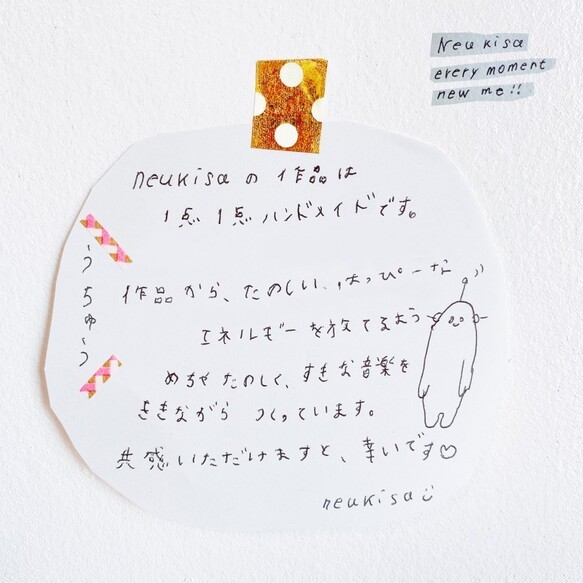 Neukisa
every moment
new me!!
neukisa の 作品は
1点 1点 ハンドメイドです。
〜うちゅ〜う
作品から、たのしい、はっぴーな
エネルギーを放てるよう
めちゃたのしく、すきな音楽を
ききながら つくっています。
共感いただけますと、幸いです♡
neukisa